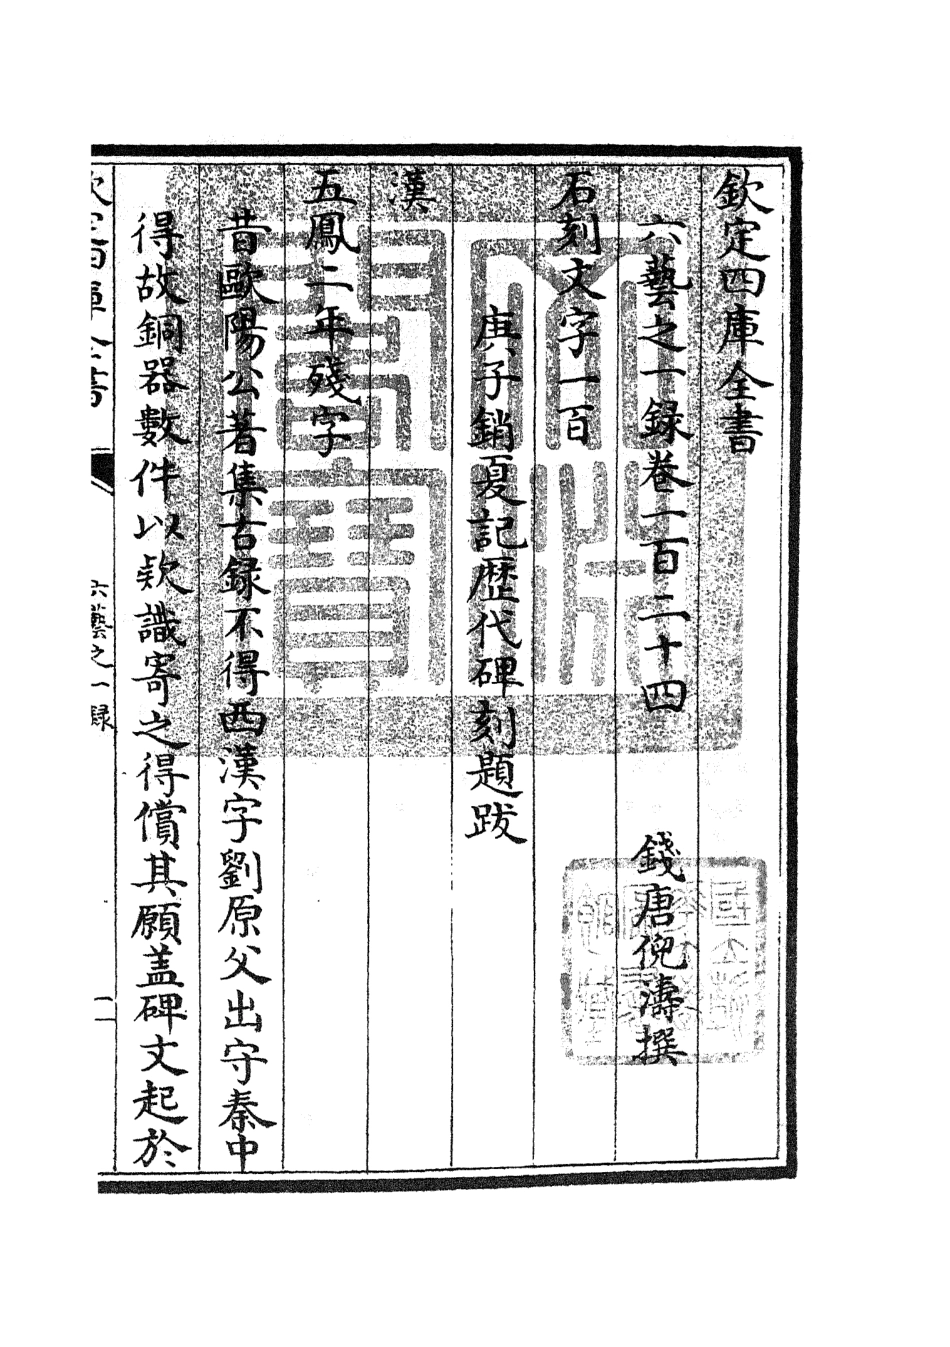 欽定四庫全書
六藝之一録卷一百二十四
錢唐倪濤撰
石刻文字一百
庚子銷夏記歴代碑刻題跋
漢
五鳳二年殘字
昔歐陽公著集古録不得西漢字劉原父出守秦中
得故銅器數件以欵識寄之得償其願盖碑文起於
欽定四庫全書
六藝之一録
一